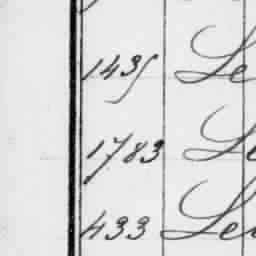 1435 Le
1783 Le
433 Le